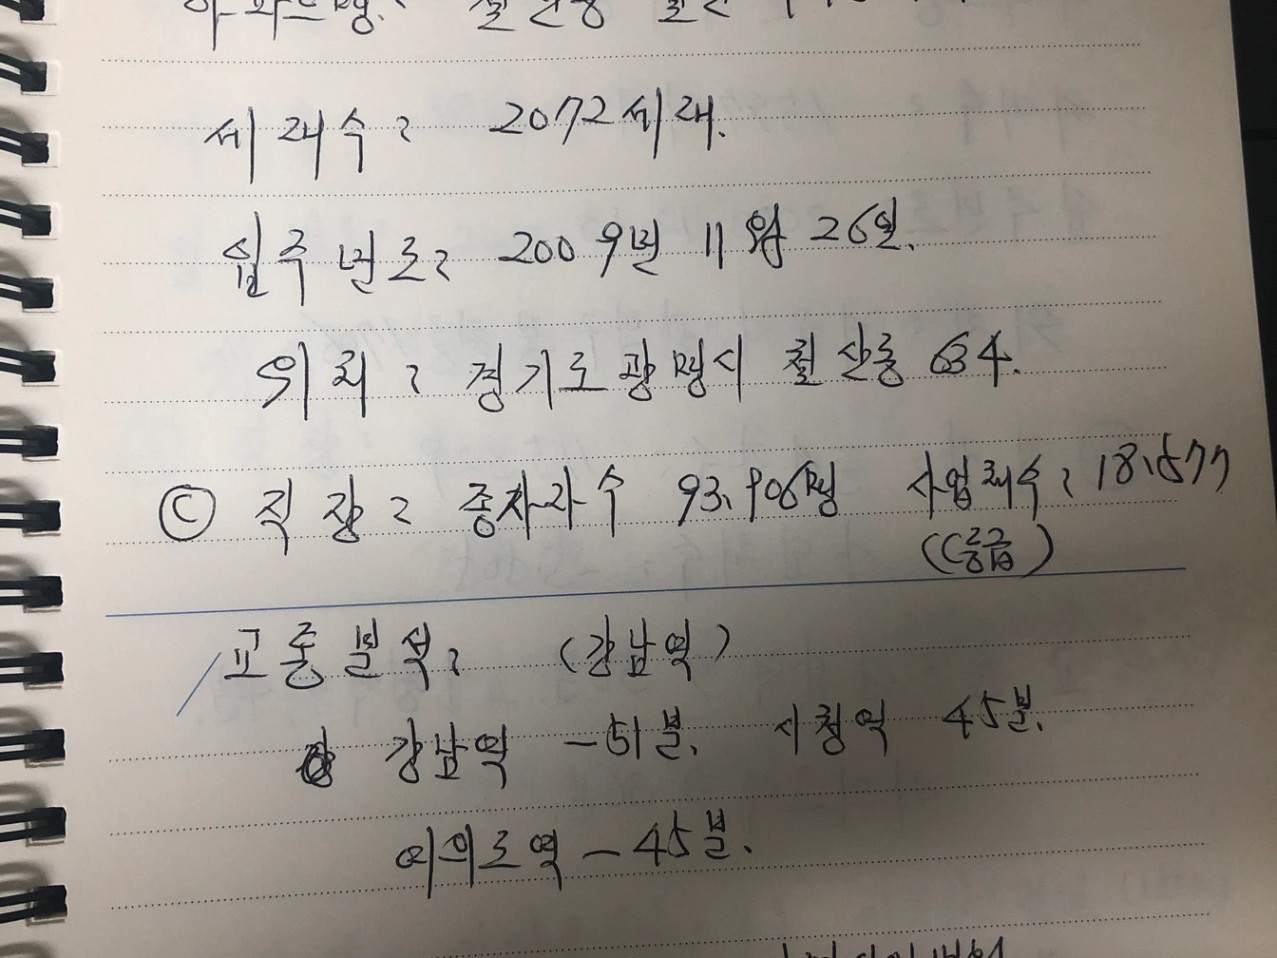 아파트명: 철산동
세대수: 2072세대.
입주년도: 2009년 11월 26일.
위치: 경기도 광명시 철산동 634.
ⓒ 직장: 종사자수 93,906명 사업체수: 18,577
교통분석: (강남역)
강남역 - 51분. 시청역 45분.
여의도역 - 45분.